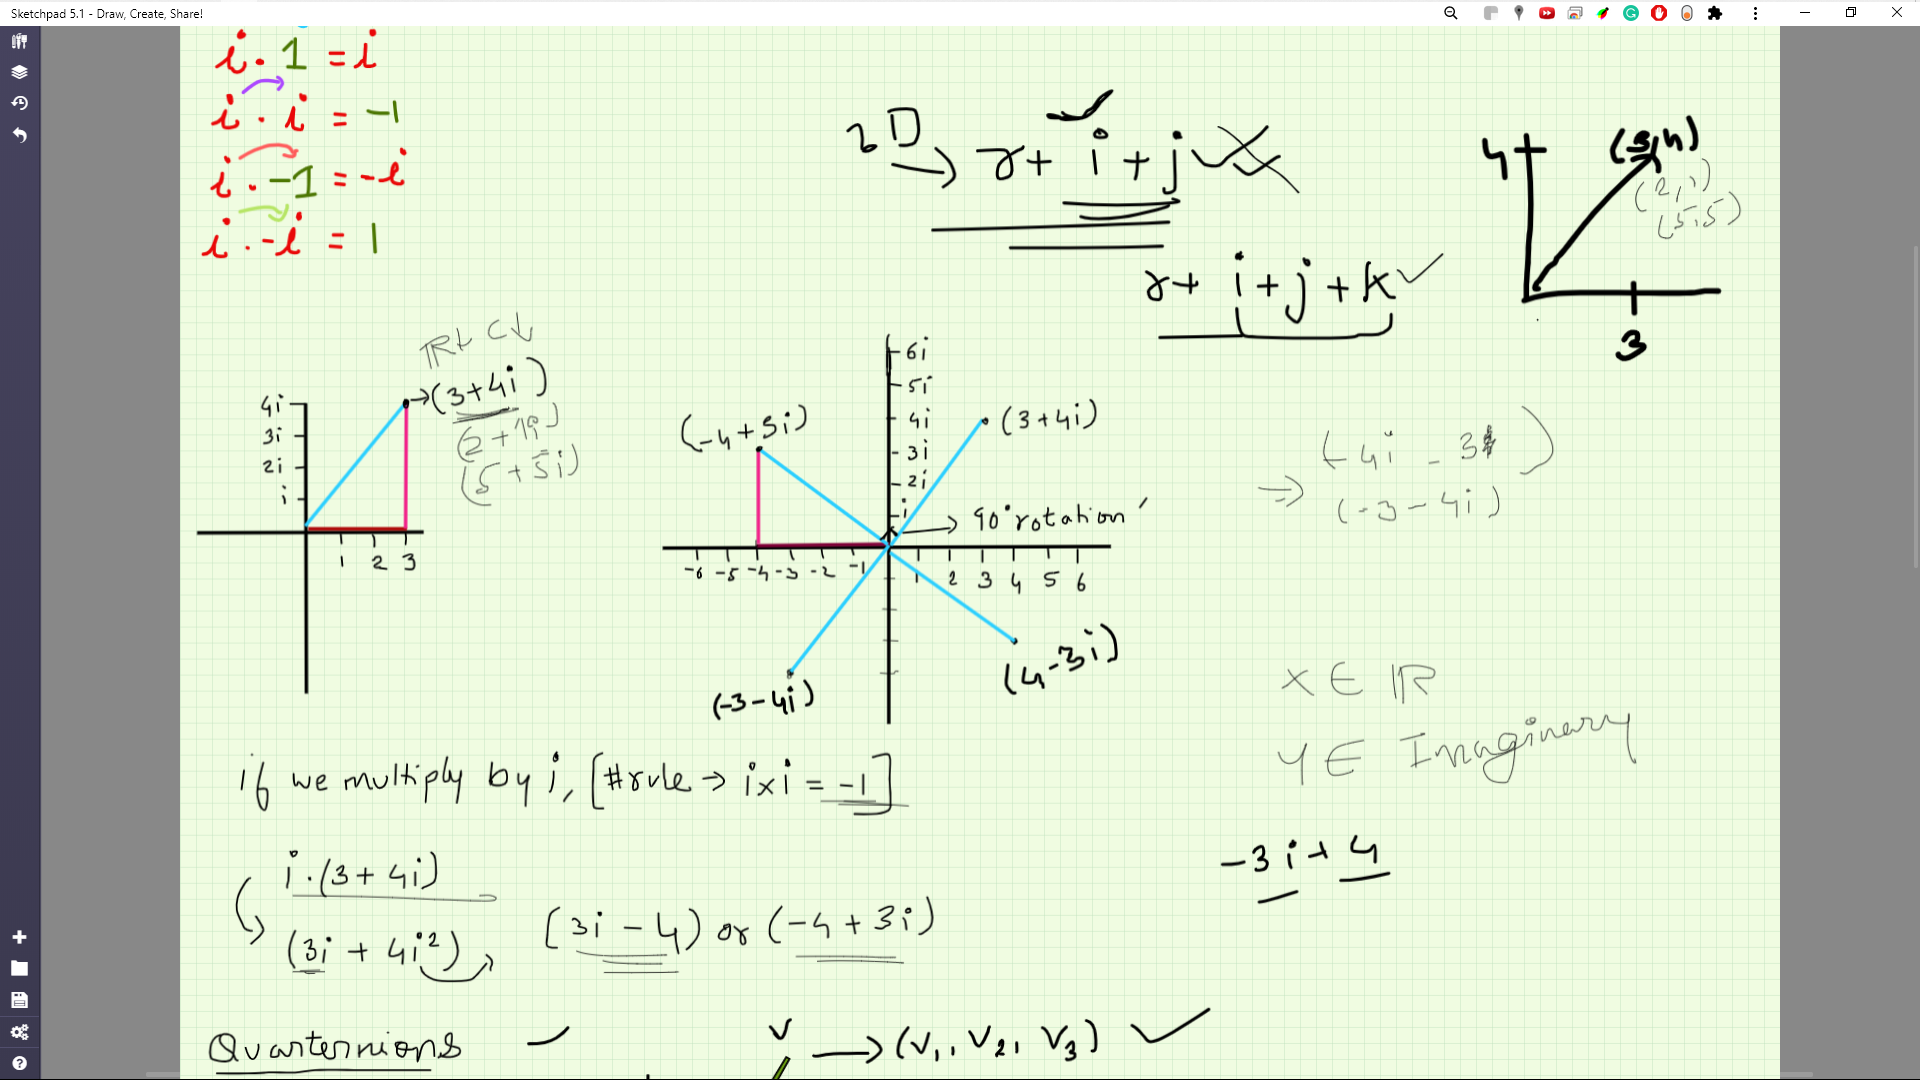 Sketchpad 5.1 - Draw, Create, Share!
i · 1 = i
i · i = -1
i · -1 = -i
i · -i = 1
2D → r + i + j
r + i + j + k
4
(3,4)
(2,1)
(5,5)
3
4i
3i
2i
i
1 2 3
→(3+4i)
(2+1i)
(5+5i)
6i
5i
4i
3i
2i
i
(-4+3i)
(3+4i)
→ 90° rotation
-6 -5 -4 -3 -2 -1 1 2 3 4 5 6
(-3-4i)
(4-3i)
(-4i - 3)
⇒ (-3-4i)
x ∈ ℝ
Y ∈ Imaginary
if we multiply by i, [#rule → i×i = -1]
i·(3+4i)
(3i + 4i²)
[3i - 4) or (-4+3i)
-3i + 4
Quarternions
v → (v₁, v₂, v₃)